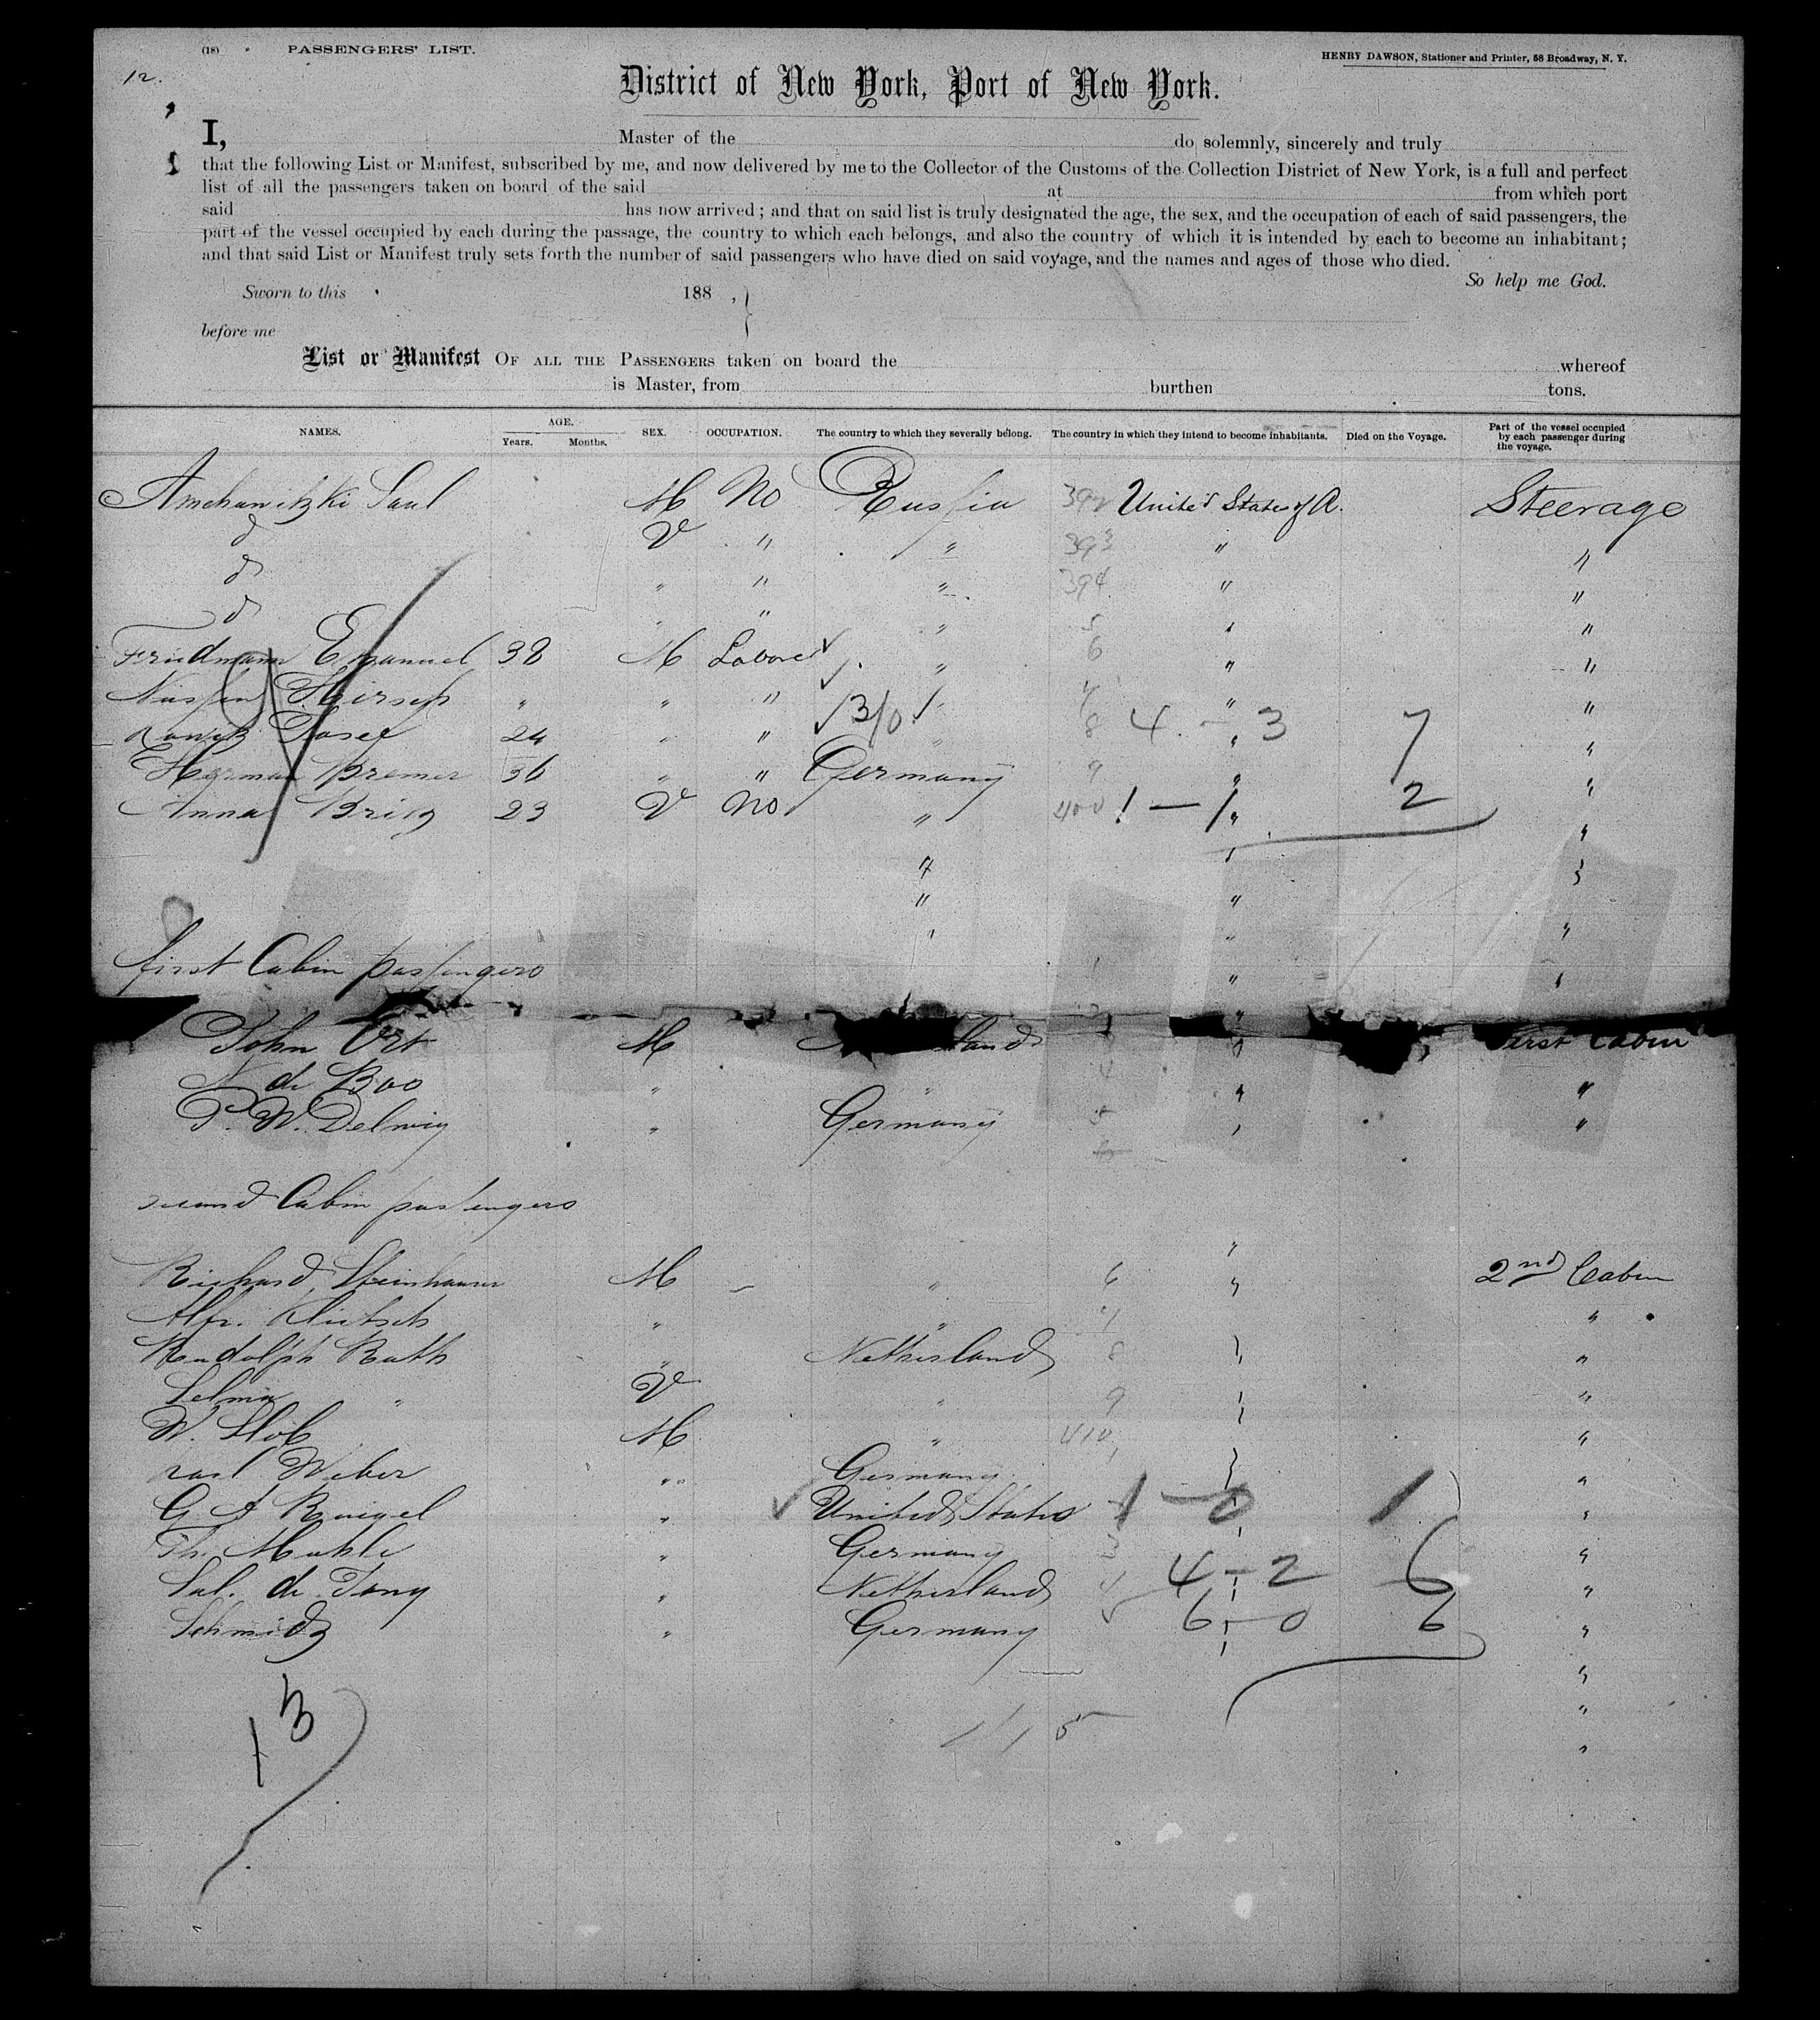 (18) PASSENGERS' LIST.
HENRY DAWSON, Stationer and Printer, 58 Broadway, N. Y.
12.
District of New York, Port of New York.
I, Master of the do solemnly, sincerely and truly
that the following List or Manifest, subscribed by me, and now delivered by me to the Collector of the Customs of the Collection District of New York, is a full and perfect
list of all the passengers taken on board of the said at from which port
said has now arrived; and that on said list is truly designated the age, the sex, and the occupation of each of said passengers, the
part of the vessel occupied by each during the passage, the country to which each belongs, and also the country of which it is intended by each to become an inhabitant;
and that said List or Manifest truly sets forth the number of said passengers who have died on said voyage, and the names and ages of those who died.
So help me God.
Sworn to this 188 , }
before me
List or Manifest OF ALL THE PASSENGERS taken on board the whereof
is Master, from burthen tons.
NAMES. AGE. Years. Months. SEX. OCCUPATION. The country to which they severally belong. The country in which they intend to become inhabitants. Died on the Voyage. Part of the vessel occupied by each passenger during the voyage.
Amchanitzki Saul M No Russia 392 United States of A. Steerage
d V " " 393 " "
d " " " 394 " "
d " " " 5 " "
Friedmann Emanuel 38 M Labore " 6 " "
Hirsch " " " " " "
24 " " 3/0 " 8 4 - 3 7 "
Herman Bremer 36 " " Germany 9 " "
Anna 23 V No " 400 1 — 1 " 2 "
" "
" " "
" " "
first Cabin passengers " "
John Ort M land " First Cabin
N de Boo " " 4 " "
P. W. Delwig " Germany 5 " "
second Cabin passengers
Richard Steinhauser M " 6 " 2nd Cabin
Alfr. " " 7 "
Rudolph Rath " Netherland 8 " "
Selma " V " 9 " "
W. Slob M " 410 "
Carl Weber " Germany "
G A " United States 1 — 0 1 "
Th. " Germany 3 4 - 2 6 "
Sal. de Jong " Netherland 4 "
Schmidz " Germany 6 - 0 6 "
"
13 "
"